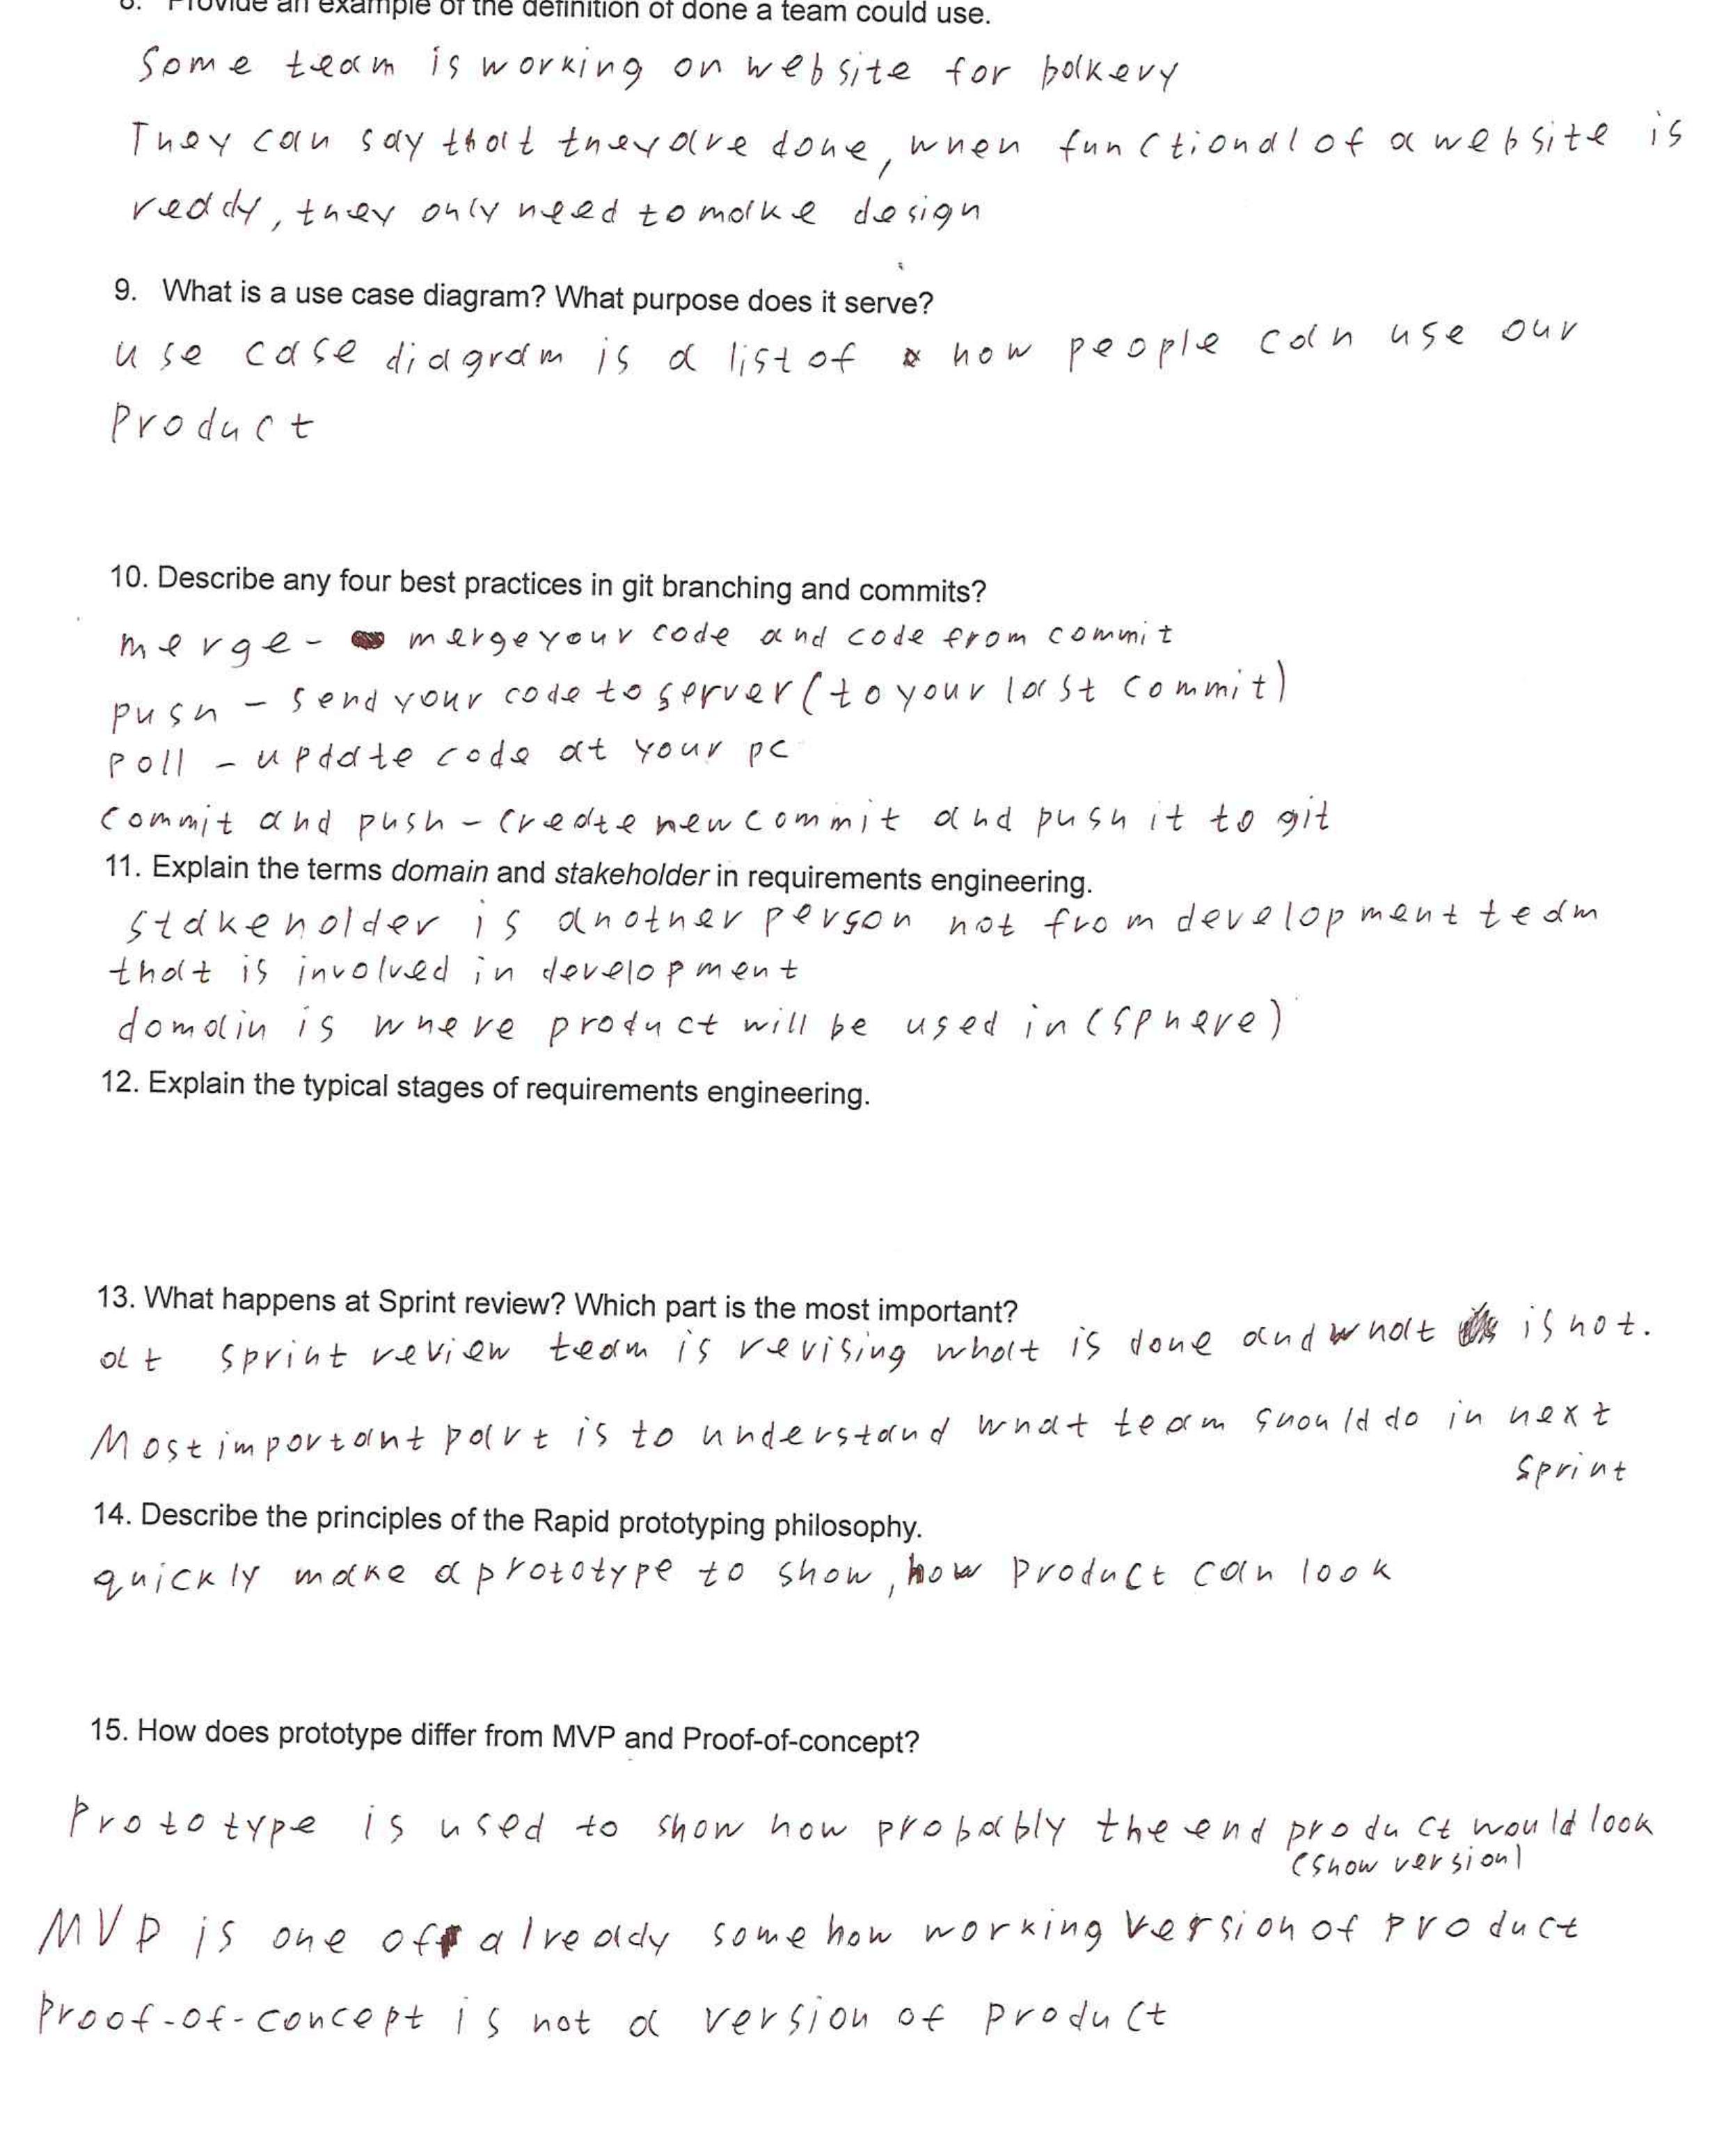 8. Provide an example of the definition of done a team could use.
Some team is working on website for bakery
They can say that they are done, when functional of a website is
ready, they only need to make design
9. What is a use case diagram? What purpose does it serve?
use case diagram is a list of how people can use our
Product
10. Describe any four best practices in git branching and commits?
merge - merge your code and code from commit
push - send your code to server (to your last commit)
poll - update code at your pc
commit and push - create new commit and push it to git
11. Explain the terms domain and stakeholder in requirements engineering.
stakeholder is another person not from development team
that is involved in development
domain is where product will be used in (sphere)
12. Explain the typical stages of requirements engineering.
13. What happens at Sprint review? Which part is the most important?
at sprint review team is revising what is done and what is not.
Most important part is to understand what team should do in next
sprint
14. Describe the principles of the Rapid prototyping philosophy.
quickly make a prototype to show, how product can look
15. How does prototype differ from MVP and Proof-of-concept?
Prototype is used to show how probably the end product would look
(show version)
MVP is one of already somehow working version of product
Proof-of-concept is not a version of product